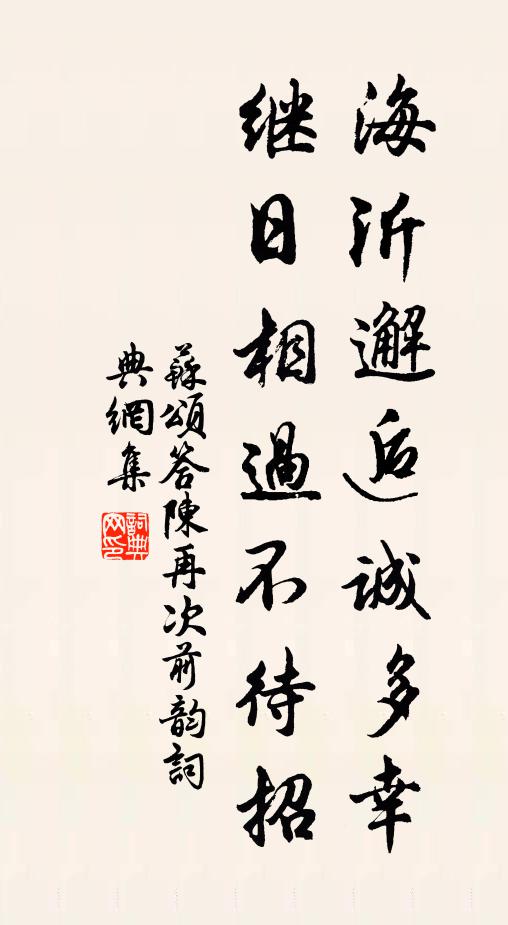 海沂邂逅诚多幸
继日相過不待招
蘇頌答陳再次前韵詞
典網集
詞典
网印